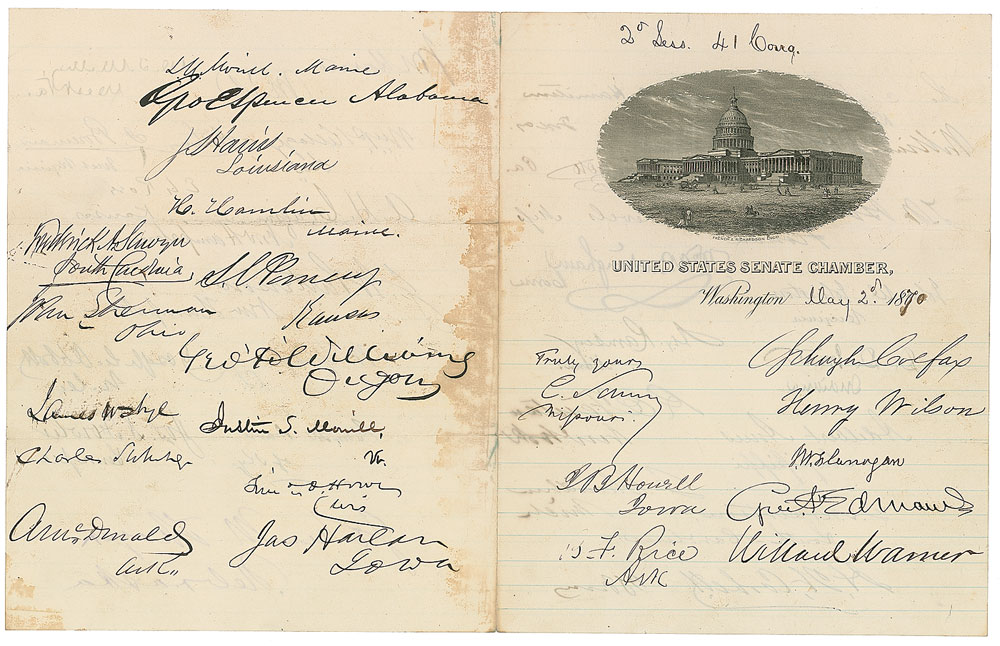 L M Morrill. Maine
Geo E Spencer Alabama
J S Harris
Louisiana
H. Hamlin
Maine.
Frederick A Sawyer
South Carolina
S. C. Pomeroy
Kansas
John Sherman
Ohio
Geo H Williams
Oregon
James W Nye
Justin S. Morrill,
Vt.
Charles Sumner
Tim O. Howe
Wis
A McDonald
Ark
Jas Harlan
Iowa
2d Sess. 41 Cong.
UNITED STATES SENATE CHAMBER,
Washington May 2d. 1870
Truly yours
Missouri
Schuyler Colfax
Henry Wilson
J. W. Flanagan
J B Howell
Iowa
Geo F Edmunds
B F. Rice
Ark
Willard Warner